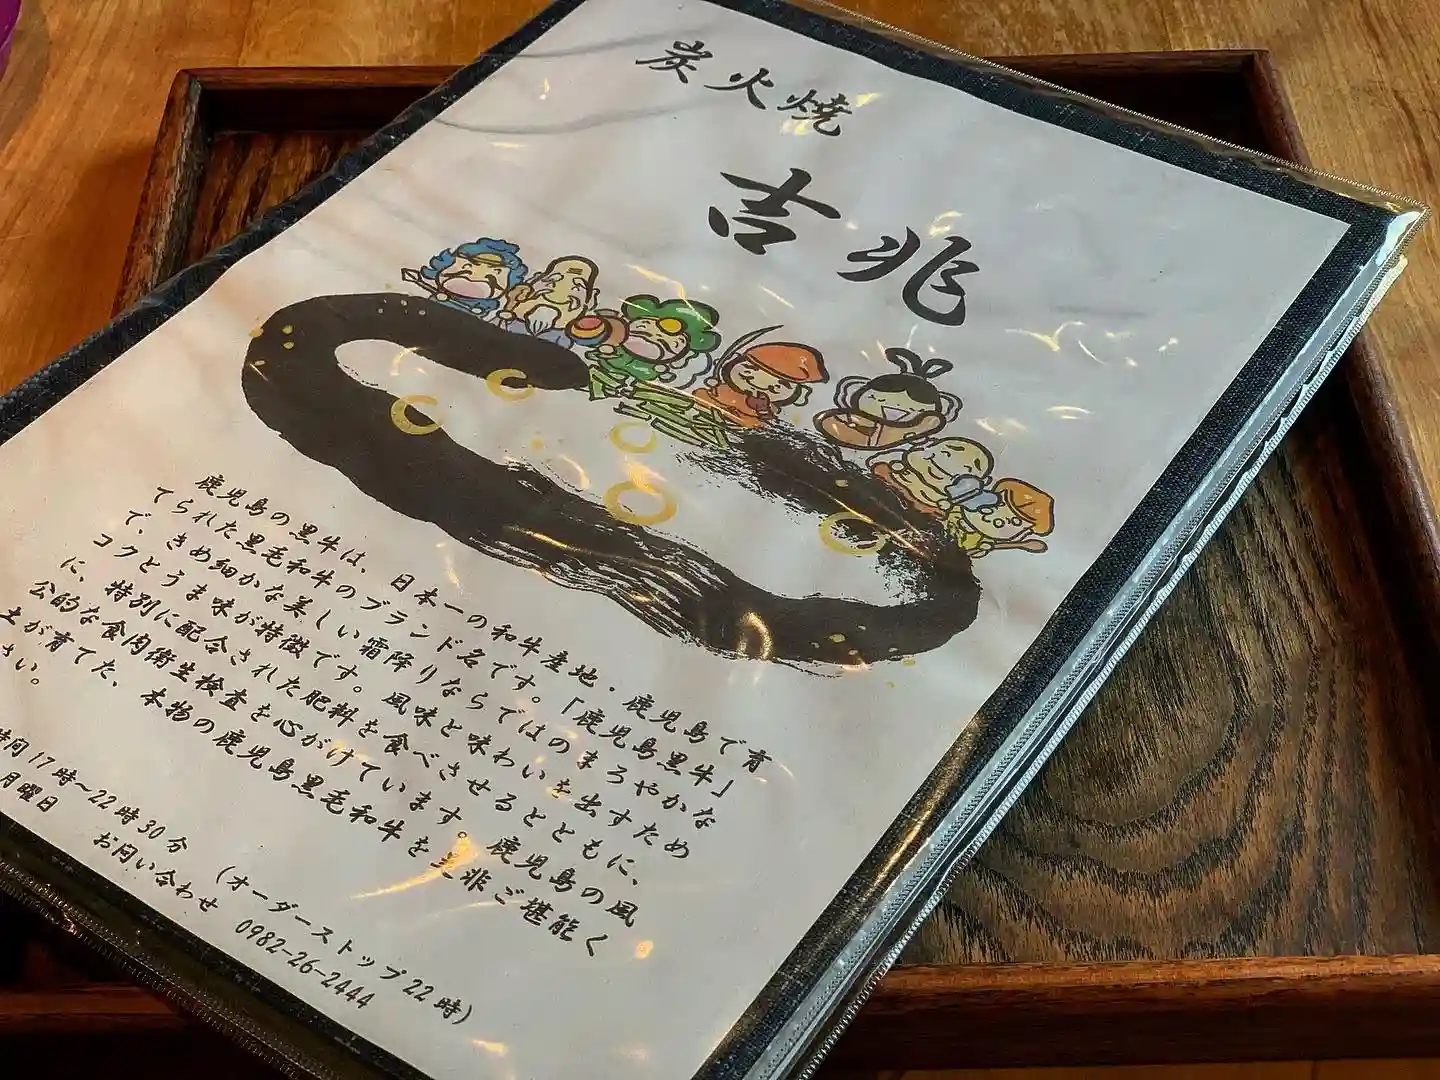 炭火焼
吉兆
鹿児島の黒牛は、日本一の和牛産地・鹿児島で育
てられた黒毛和牛のブランド名です。「鹿児島黒牛」
で、きめ細かな美しい霜降りならではのまろやかな
コクとうま味が特徴です。風味と味わいを出すため
に、特別に配合された肥料を食べさせるとともに、
公的な食肉衛生検査を心がけています。鹿児島の風
土が育てた、本物の鹿児島黒毛和牛を是非ご堪能く
さい。
時間17時～22時30分 (オーダーストップ22時)
月曜日 お問い合わせ 0982-26-2444